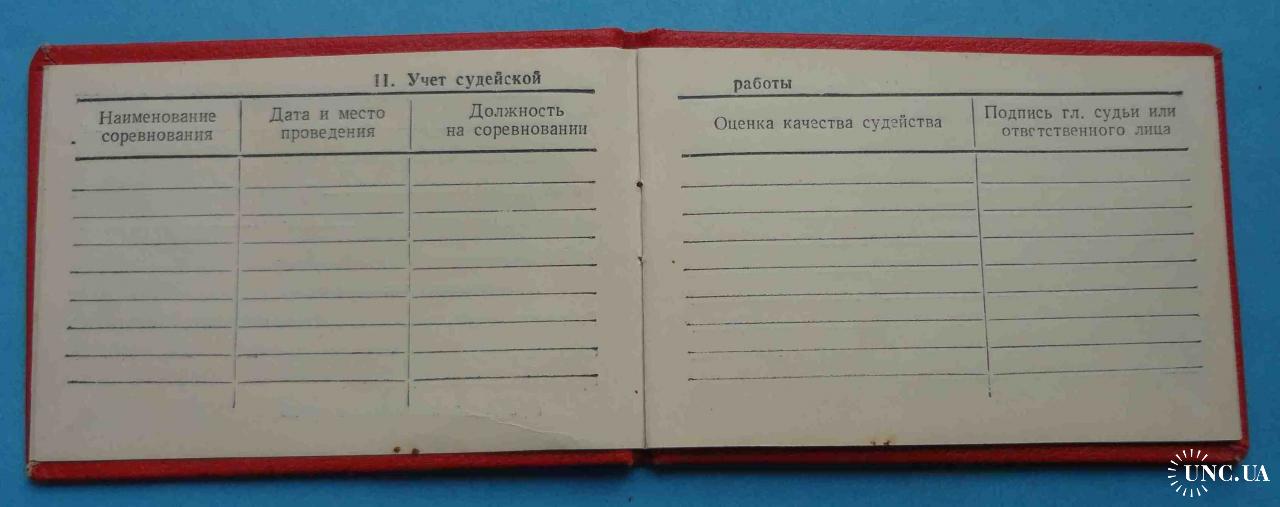 II. Учет судейской работы
Наименование соревнования
Дата и место проведения
Должность на соревновании
Оценка качества судейства
Подпись гл. судьи или ответственного лица
UNC.UA